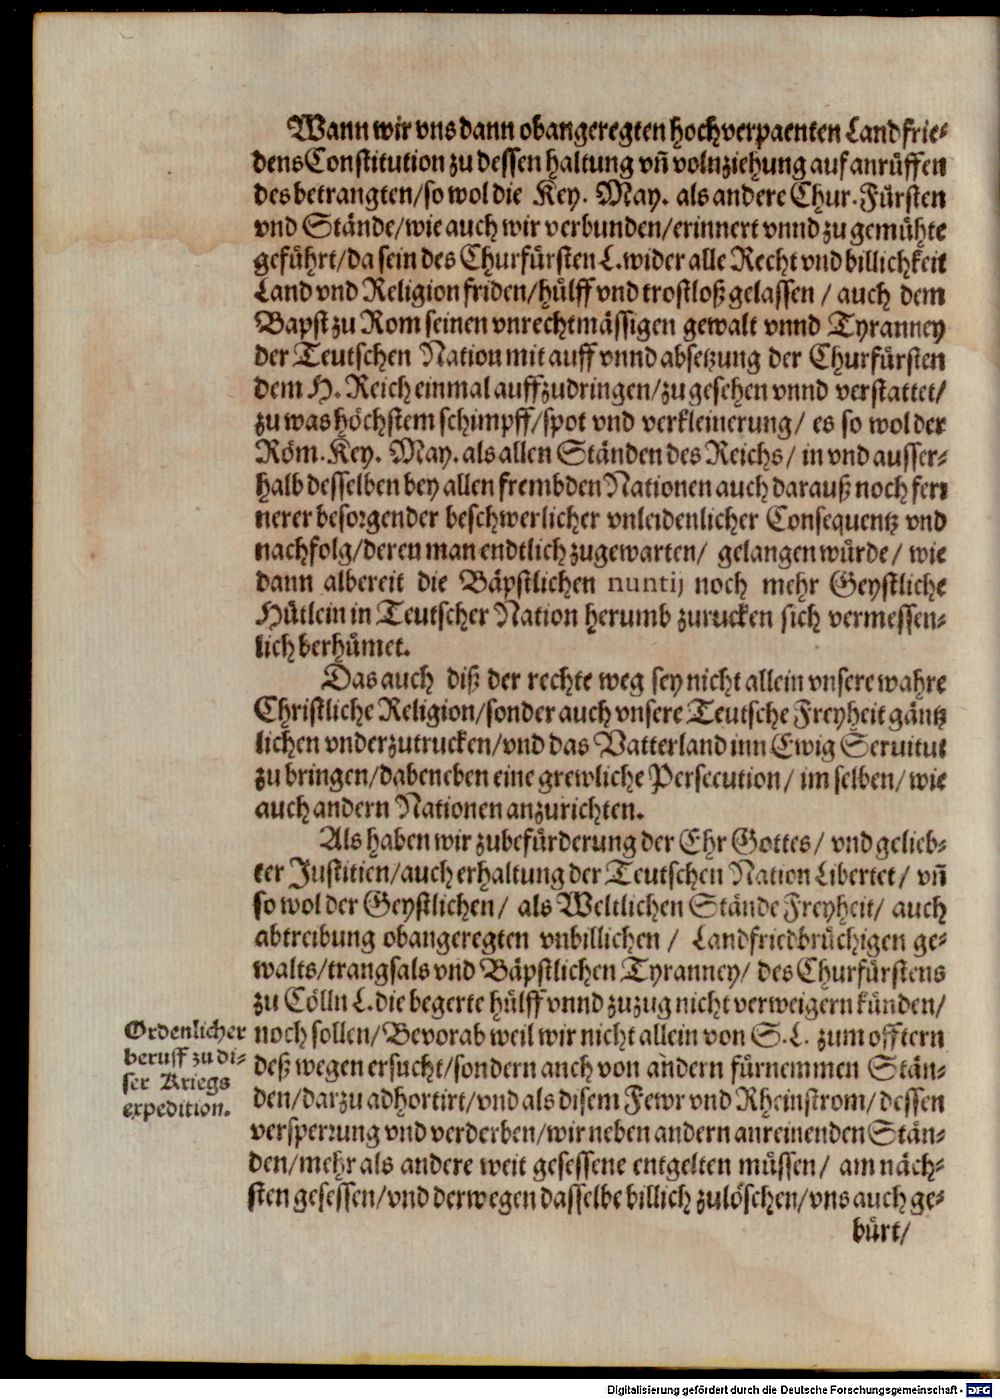 Wann wir vns dann obangeregten hochverpaenten Landfrie⸗
dens Constitution zu dessen haltung vñ volnziehung auf anrüffen
des betrangten/so wol die Key. May. als andere Chur. Fürsten
vnd Stände/wie auch wir verbunden/erinnert vnnd zu gemühte
geführt/da sein des Churfürsten L. wider alle Recht vnd billichkeit
Land vnd Religion friden/hülff vnd trostloß gelassen / auch dem
Bapst zu Rom seinen vnrechtmässigen gewalt vnnd Tyranney
der Teutschen Nation mit auff vnnd absetzung der Churfürsten
dem H. Reich einmal auffzudringen/zu gesehen vnnd verstattet/
zu was höchstem schimpff/spot vnd verkleinerung/ es so wol der
Röm. Key. May. als allen Ständen des Reichs/ in vnd ausser⸗
halb desselben bey allen frembden Nationen auch darauß noch fern
nerer besorgender beschwerlicher vnleidenlicher Consequentz vnd
nachfolg/deren man endtlich zugewarten/ gelangen würde/ wie
dann albereit die Bäpstlichen nuntij noch mehr Geystliche
Hütlein in Teutscher Nation herumb zurucken sich vermessen⸗
lich berhümet.
Das auch diß der rechte weg sey nicht allein vnsere wahre
Christliche Religion/sonder auch vnsere Teutsche Freyheit gäntz
lichen vnderzutrucken/vnd das Vatterland inn Ewig Seruitut
zu bringen/dabeneben eine grewliche Persecution/ im selben/ wie
auch andern Nationen anzurichten.
Als haben wir zubefürderung der Ehr Gottes/ vnd gelieb⸗
ter Justitien/auch erhaltung der Teutschen Nation Libertet/ vñ
so wol der Geystlichen/ als Weltlichen Stände Freyheit/ auch
abtreibung obangeregten vnbillichen / Landfriedbrüchigen ge⸗
walts/trangsals vnd Bäpstlichen Tyranney/ des Churfürstens
zu Cölln L. die begerte hülff vnnd zuzug nicht verweigern künden/
noch sollen/Bevorab weil wir nicht allein von S. L. zum offtern
deß wegen ersucht/sondern auch von andern fürnemmen Stän⸗
den/darzu adhortirt/vnd als disem Fewr vnd Rheinstrom/dessen
versperrung vnd verderben/wir neben andern anreinenden Stän⸗
den/mehr als andere weit gesessene entgelten müssen/ am näch⸗
sten gesessen/vnd derwegen dasselbe billich zulöschen/vns auch ge⸗
bürt/
Ordenlicher
beruff zu di⸗
ser Kriegs
expedition.
Digitalisierung gefördert durch die Deutsche Forschungsgemeinschaft - DFG